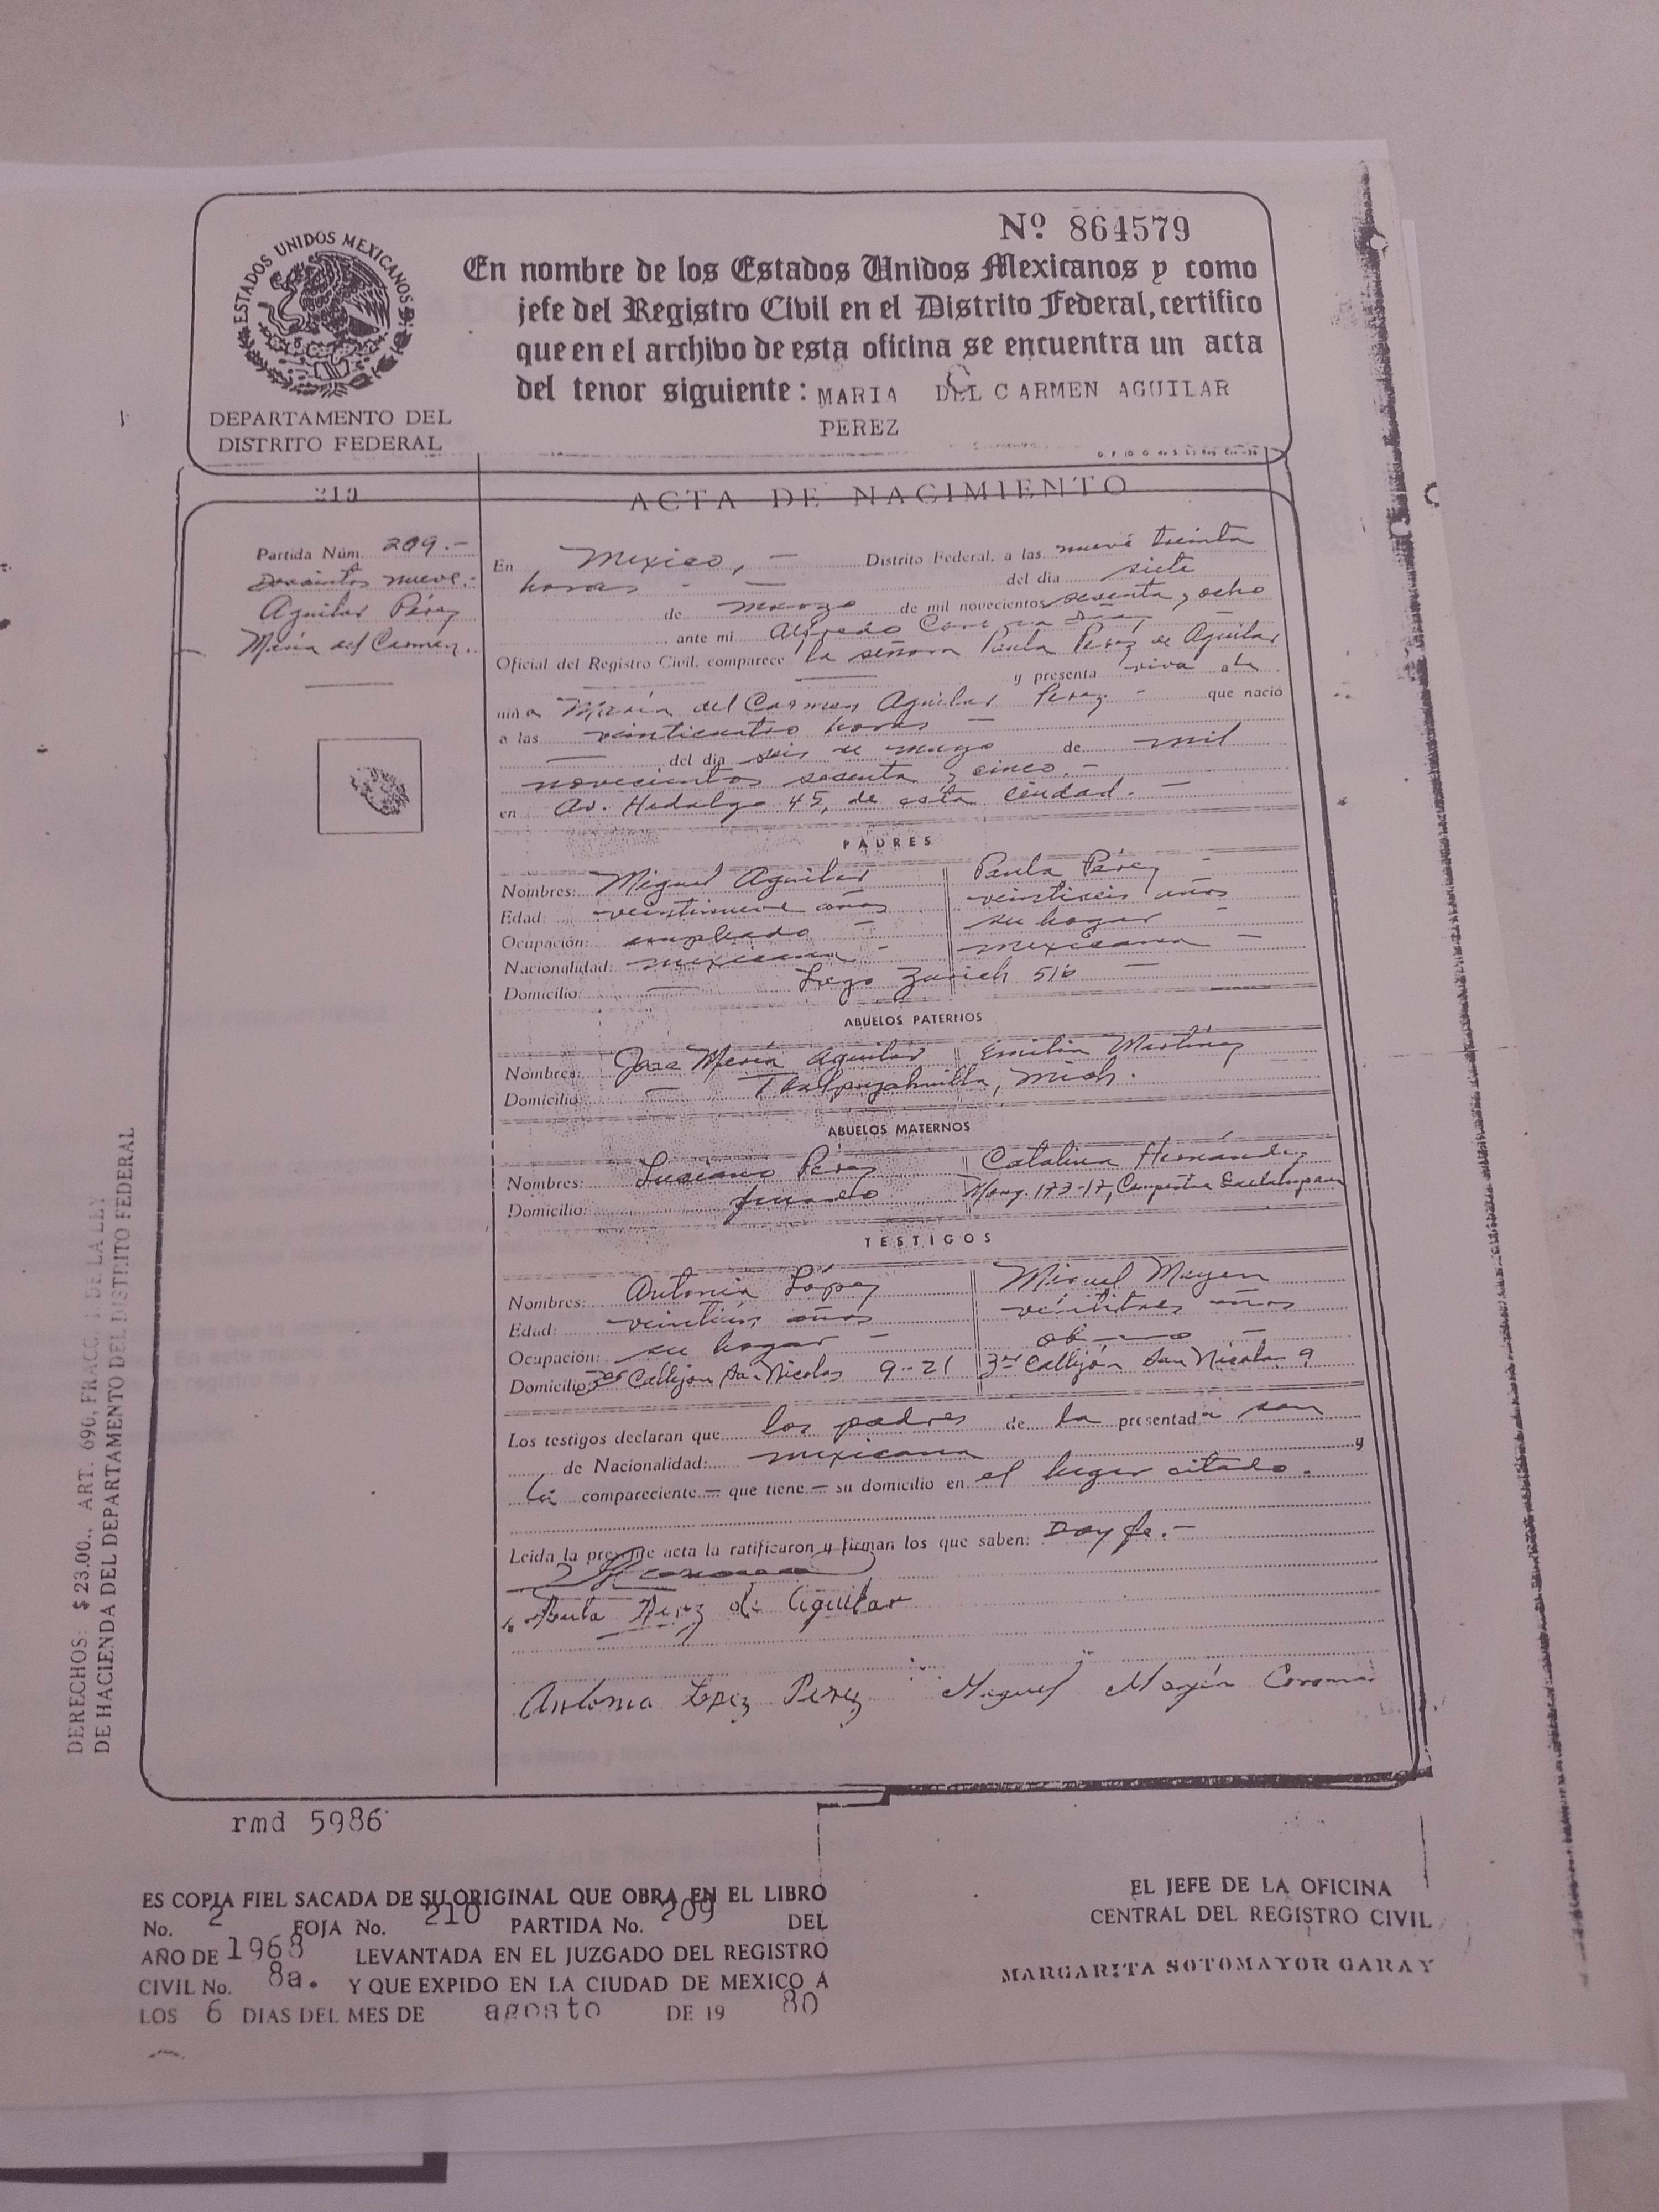 Nº 864579
ESTADOS UNIDOS MEXICANOS
En nombre de los Estados Unidos Mexicanos y como
jefe del Registro Civil en el Distrito Federal, certifico
que en el archivo de esta oficina se encuentra un acta
del tenor siguiente: MARIA DEL CARMEN AGUILAR
PEREZ
DEPARTAMENTO DEL
DISTRITO FEDERAL
210
ACTA DE NACIMIENTO
Partida Núm. 209.-
doscientos nueve.-
Aguilar Pérez
María del Carmen.
En Mexico, - Distrito Federal, a las nueve treinta
horas - - del día siete
de marzo de mil novecientos sesenta y ocho
ante mi Alfredo
Oficial del Registro Civil, comparece la señora Paula Perez de Aguilar
y presenta viva a la
niña María del Carmen Aguilar Perez - que nació
a las veinticuatro horas -
del día seis de mayo de mil
novecientos sesenta y cinco.-
en Av. Hidalgo 45, de esta ciudad. -
PADRES
Nombres: Miguel Aguilar Paula Pérez -
Edad: veintinueve años veintiseis años
Ocupación: empleado - su hogar -
Nacionalidad: mexicana - mexicana -
Domicilio: - Lago Zurich 516 -
ABUELOS PATERNOS
Nombres: Jose María Aguilar Emilia Martínez
Domicilio: - Mich.
ABUELOS MATERNOS
Nombres: Luciano Pérez Catalina Hernández
Domicilio: finado 173-17, Campestre Guadalupana
TESTIGOS
Nombres: Antonia López Miguel Mayen
Edad: años veintitres años
Ocupación: su hogar - obrero -
Domicilio: 3er Callejón San Nicolas 9-21 3er Callejón San Nicolas 9
Los testigos declaran que los padres de la presentada son
de Nacionalidad: mexicana y
la compareciente - que tiene - su domicilio en el lugar citado.
Leida la presente acta la ratificaron y firman los que saben: Doy fe.-
Paula Perez de Aguilar
Antonia Lopez Perez Miguel Mayén
DERECHOS: $ 23.00., ART. 690, FRACC. I. DE LA LEY
DE HACIENDA DEL DEPARTAMENTO DEL DISTRITO FEDERAL
rmd 5986
ES COPIA FIEL SACADA DE SU ORIGINAL QUE OBRA EN EL LIBRO
No. 2 FOJA No. 210 PARTIDA No. 209 DEL
AÑO DE 1968 LEVANTADA EN EL JUZGADO DEL REGISTRO
CIVIL No. 8a. Y QUE EXPIDO EN LA CIUDAD DE MEXICO A
LOS 6 DIAS DEL MES DE agosto DE 19 80
EL JEFE DE LA OFICINA
CENTRAL DEL REGISTRO CIVIL
MARGARITA SOTOMAYOR GARAY